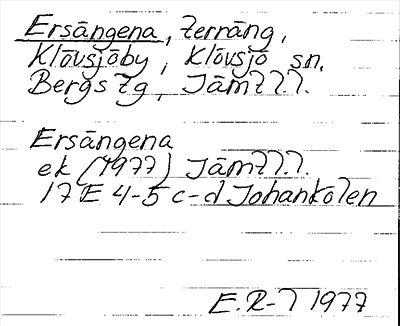 Ersängena, terräng,
Klövsjöby, Klövsjö sn.
Bergs tg, Jämtl.l.
Ersängena
ek (1977) Jämtl.l.
17E 4-5 c-d Johankölen
E.R-l 1977